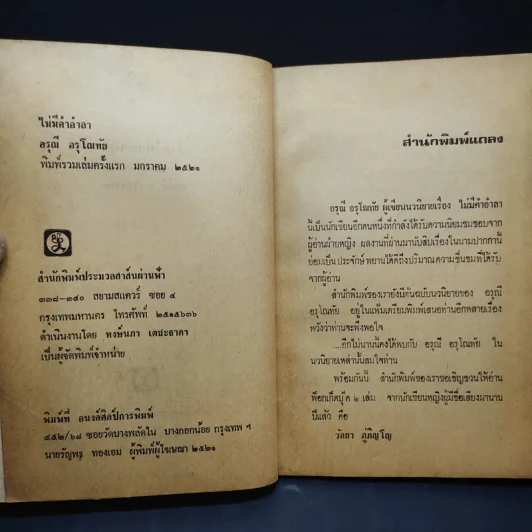 ไม่มีคำอำลา
อรุณี อรุโณทัย
พิมพ์รวมเล่มครั้งแรก มกราคม ๒๕๒๑
สำนักพิมพ์ประมวลสาส์นผ่านฟ้า
๓๓๘-๓๔๐ สยามสแควร์ ซอย ๔
กรุงเทพมหานคร โทรศัพท์ ๒๕๑๕๖๓๖
ดำเนินงานโดย หงษ์นภา เตชะธาดา
เป็นผู้จัดพิมพ์จำหน่าย
พิมพ์ที่ อนงค์ศิลป์การพิมพ์
๔๕๒/๖๘ ซอยวัดบางพลัดใน บางกอกน้อย กรุงเทพ ฯ
นายรัญพฐ ทองเอม ผู้พิมพ์ผู้โฆษณา ๒๕๒๑
สำนักพิมพ์แถลง
อรุณี อรุโณทัย ผู้เขียนนวนิยายเรื่อง ไม่มีคำอำลา
นี้เป็นนักเขียนอีกคนหนึ่งที่กำลังได้รับความนิยมชมชอบจาก
ผู้อ่านฝ่ายหญิง ผลงานที่ผ่านมานับสิบเรื่องในนามปากกานี้
ย่อมเป็นประจักษ์พยานได้ดีถึงปริมาณความชื่นชมที่ได้รับ
จากผู้อ่าน
สำนักพิมพ์ของเรายังมีต้นฉบับนวนิยายของ อรุณี
อรุโณทัย อยู่ในแฟ้มเตรียมพิมพ์เสนอท่านอีกหลายเรื่อง
หวังว่าท่านจะพึงพอใจ
...อีกไม่นานนี้คงได้พบกับ อรุณี อรุโณทัย ใน
นวนิยายเหล่านั้นสมใจท่าน
พร้อมกันนี้ สำนักพิมพ์ของเราขอเชิญชวนให้อ่าน
พ็อกเก็ตบุ๊ค ๒ เล่ม จากนักเขียนหญิงผู้มีชื่อเสียงมานาน
ปีแล้ว คือ
วัลถา ภู่ภิญโญ